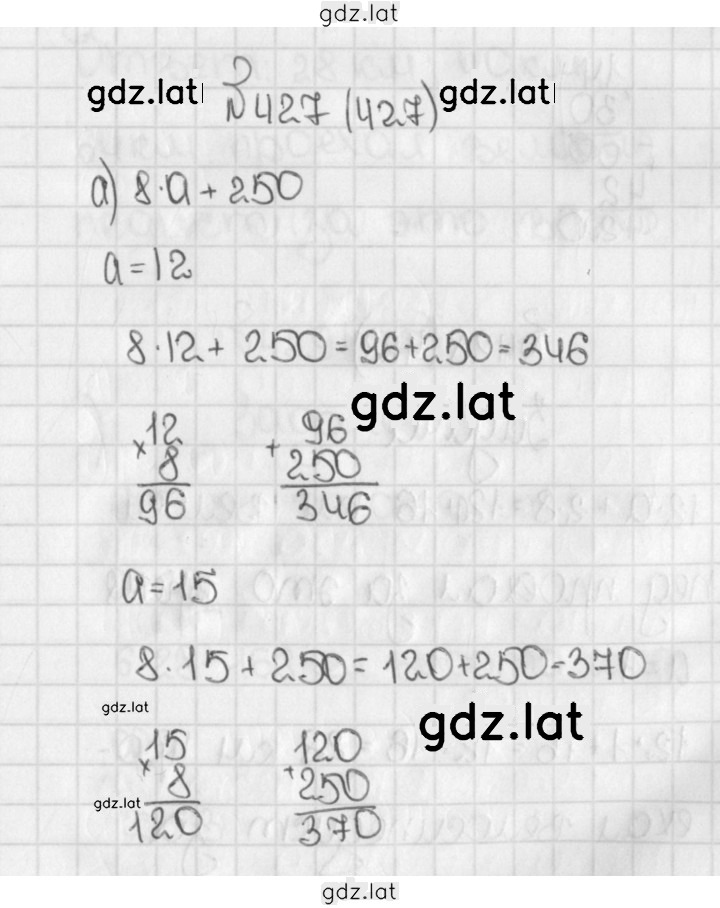 gdz.lat
gdz.lat № 427 (427) gdz.lat
а) 8·a + 250
a = 12
8·12 + 250 = 96+250 = 346
gdz.lat
12 96
× 8 + 250
96 346
a = 15
8·15 + 250 = 120+250 = 370
gdz.lat gdz.lat
15 120
gdz.lat × 8 + 250
120 370
gdz.lat